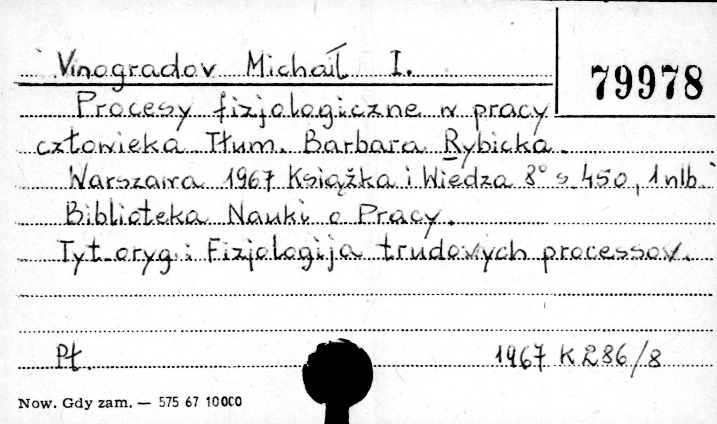 Vinogradov Michaił I.
79978
Procesy fizjologiczne w pracy
człowieka Tłum. Barbara Rybicka.
Warszawa 1967 Książka i Wiedza 8° s 450, 1 nlb.
Biblioteka Nauki o Pracy.
Tyt. oryg.: Fizjologija trudovych processov.
Pł. 1967 K 286/8
Now. Gdy zam. — 575 67 10000